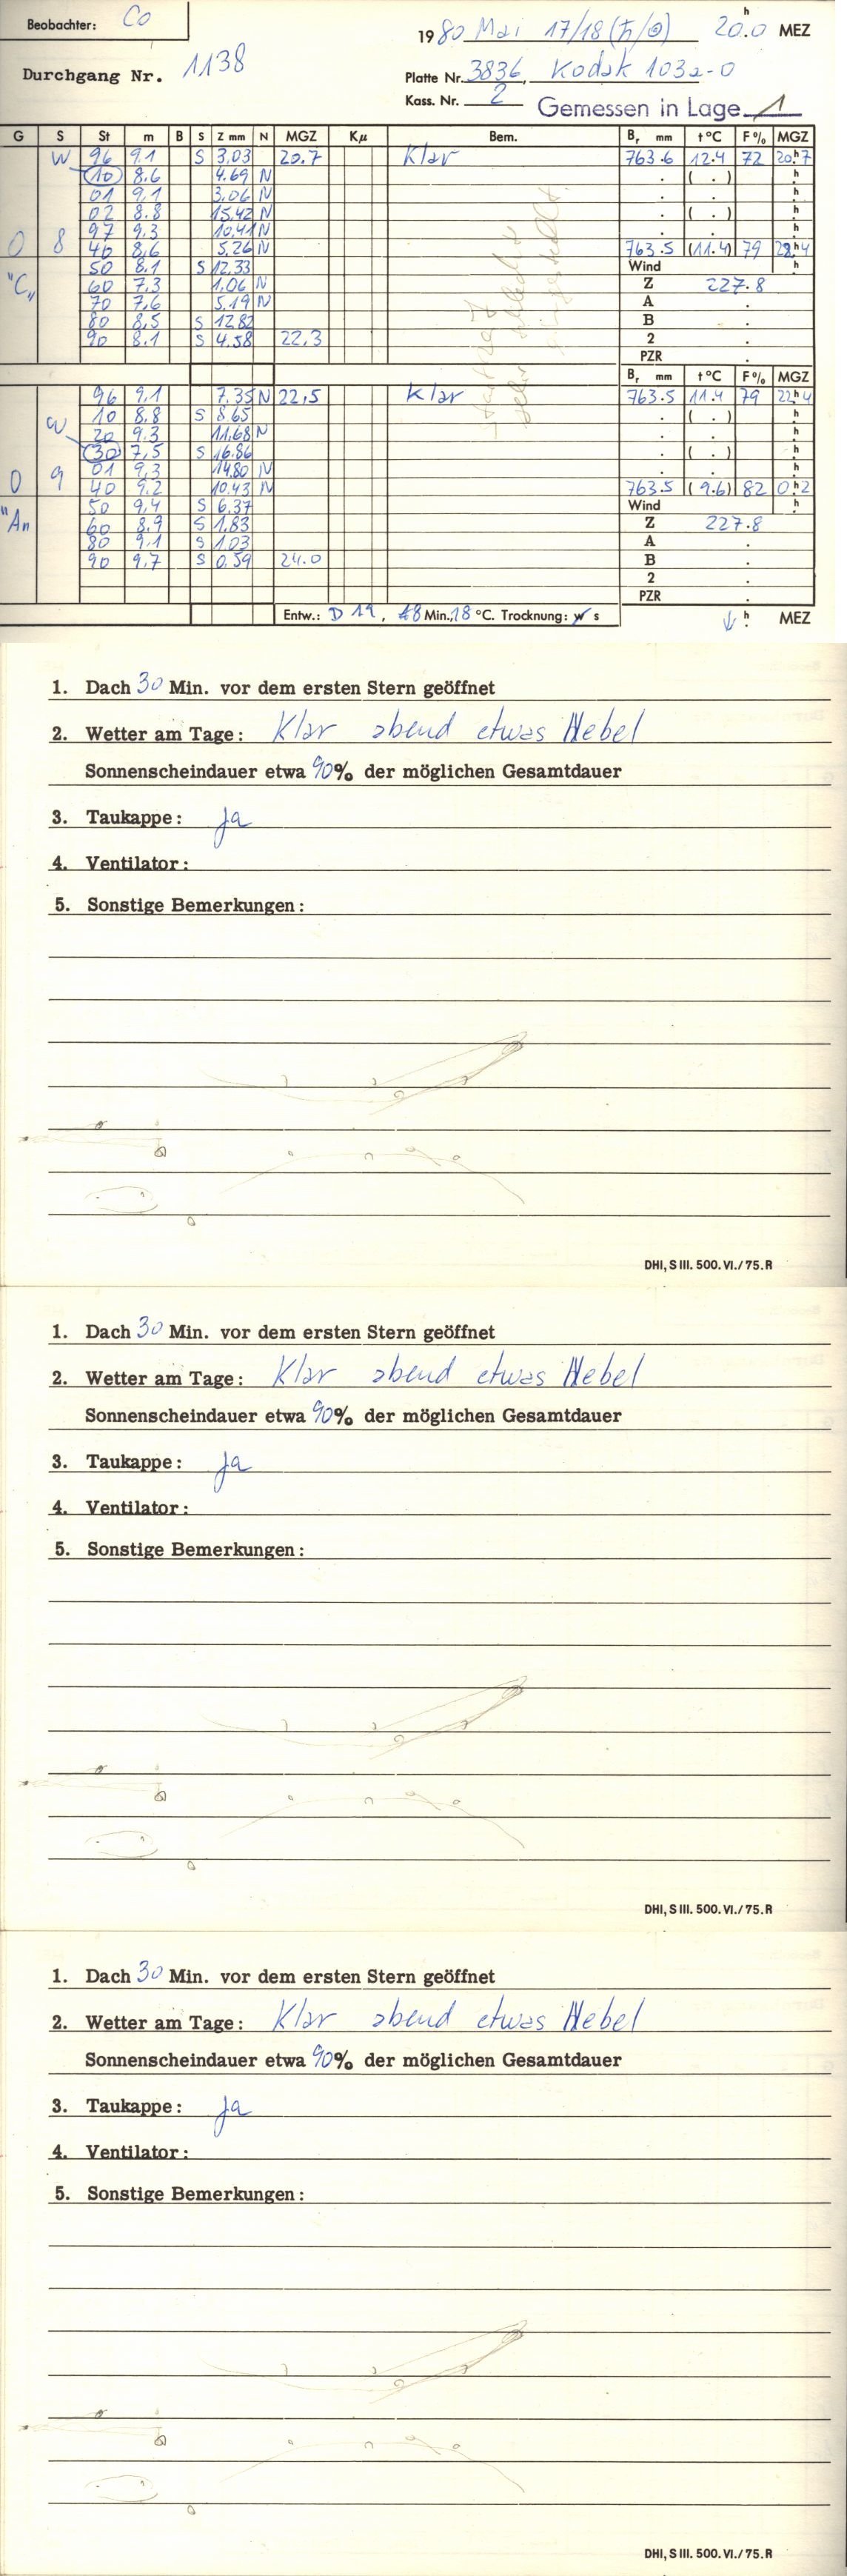 Beobachter: Co
1980 Mai 17/18 (ħ/⊙) 20.0 h MEZ
Durchgang Nr. 1138
Platte Nr. 3836, Kodak 103a-O
Kass. Nr. 2 Gemessen in Lage 1
G S St m B S Z mm N MGZ Kμ Bem. Br mm t°C F% MGZ
W 96 9.1 S 3.03 20.7 Klar 763.6 12.4 72 20h7
10 8.6 4.69 N . ( . ) h
01 9.1 3.06 N . h
02 8.8 15.42 N . ( . ) h
97 9.3 10.41 N . h
O 8 40 8.6 5.26 N 763.5 (11.4) 79 22h4
"C" 50 8.1 S 12.33 Wind h
60 7.3 1.06 N Z 227.8
70 7.6 5.19 N A .
80 8.5 S 12.82 B .
90 8.1 S 4.58 22.3 2 .
PZR .
Br mm t°C F% MGZ
96 9.1 7.35 N 22.5 Klar 763.5 11.4 79 22h4
10 8.8 S 8.65 . ( . ) h
W 20 9.3 11.68 N . h
30 7.5 S 16.86 . ( . ) h
01 9.3 14.80 N . h
O 9 40 9.2 10.43 N 763.5 (9.6) 82 0h2
50 9.4 S 6.37 Wind h
"A" 60 8.9 S 1.83 Z 227.8
80 9.1 S 1.03 A .
90 9.7 S 0.59 24.0 B .
2 .
PZR .
Entw.: D 19, 18 Min., 18 °C. Trocknung: w s h MEZ
1. Dach 30 Min. vor dem ersten Stern geöffnet
2. Wetter am Tage: Klar abend etwas Nebel
Sonnenscheindauer etwa 90% der möglichen Gesamtdauer
3. Taukappe: Ja
4. Ventilator:
5. Sonstige Bemerkungen:
DHI, S III. 500. VI./75. R
1. Dach 30 Min. vor dem ersten Stern geöffnet
2. Wetter am Tage: Klar abend etwas Nebel
Sonnenscheindauer etwa 90% der möglichen Gesamtdauer
3. Taukappe: Ja
4. Ventilator:
5. Sonstige Bemerkungen:
DHI, S III. 500. VI./75. R
1. Dach 30 Min. vor dem ersten Stern geöffnet
2. Wetter am Tage: Klar abend etwas Nebel
Sonnenscheindauer etwa 90% der möglichen Gesamtdauer
3. Taukappe: Ja
4. Ventilator:
5. Sonstige Bemerkungen:
DHI, S III. 500. VI./75. R